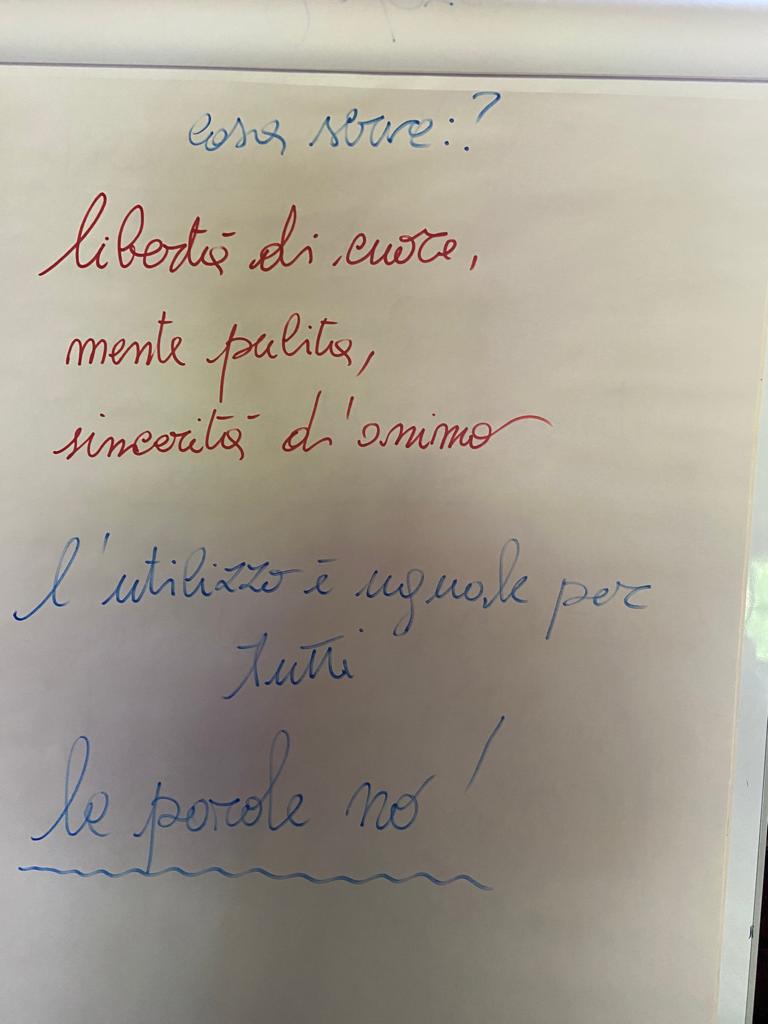 cosa serve:?
libertà di cuore,
mente pulita,
sincerità d'animo
l'utilizzo è uguale per
tutti
le parole no!